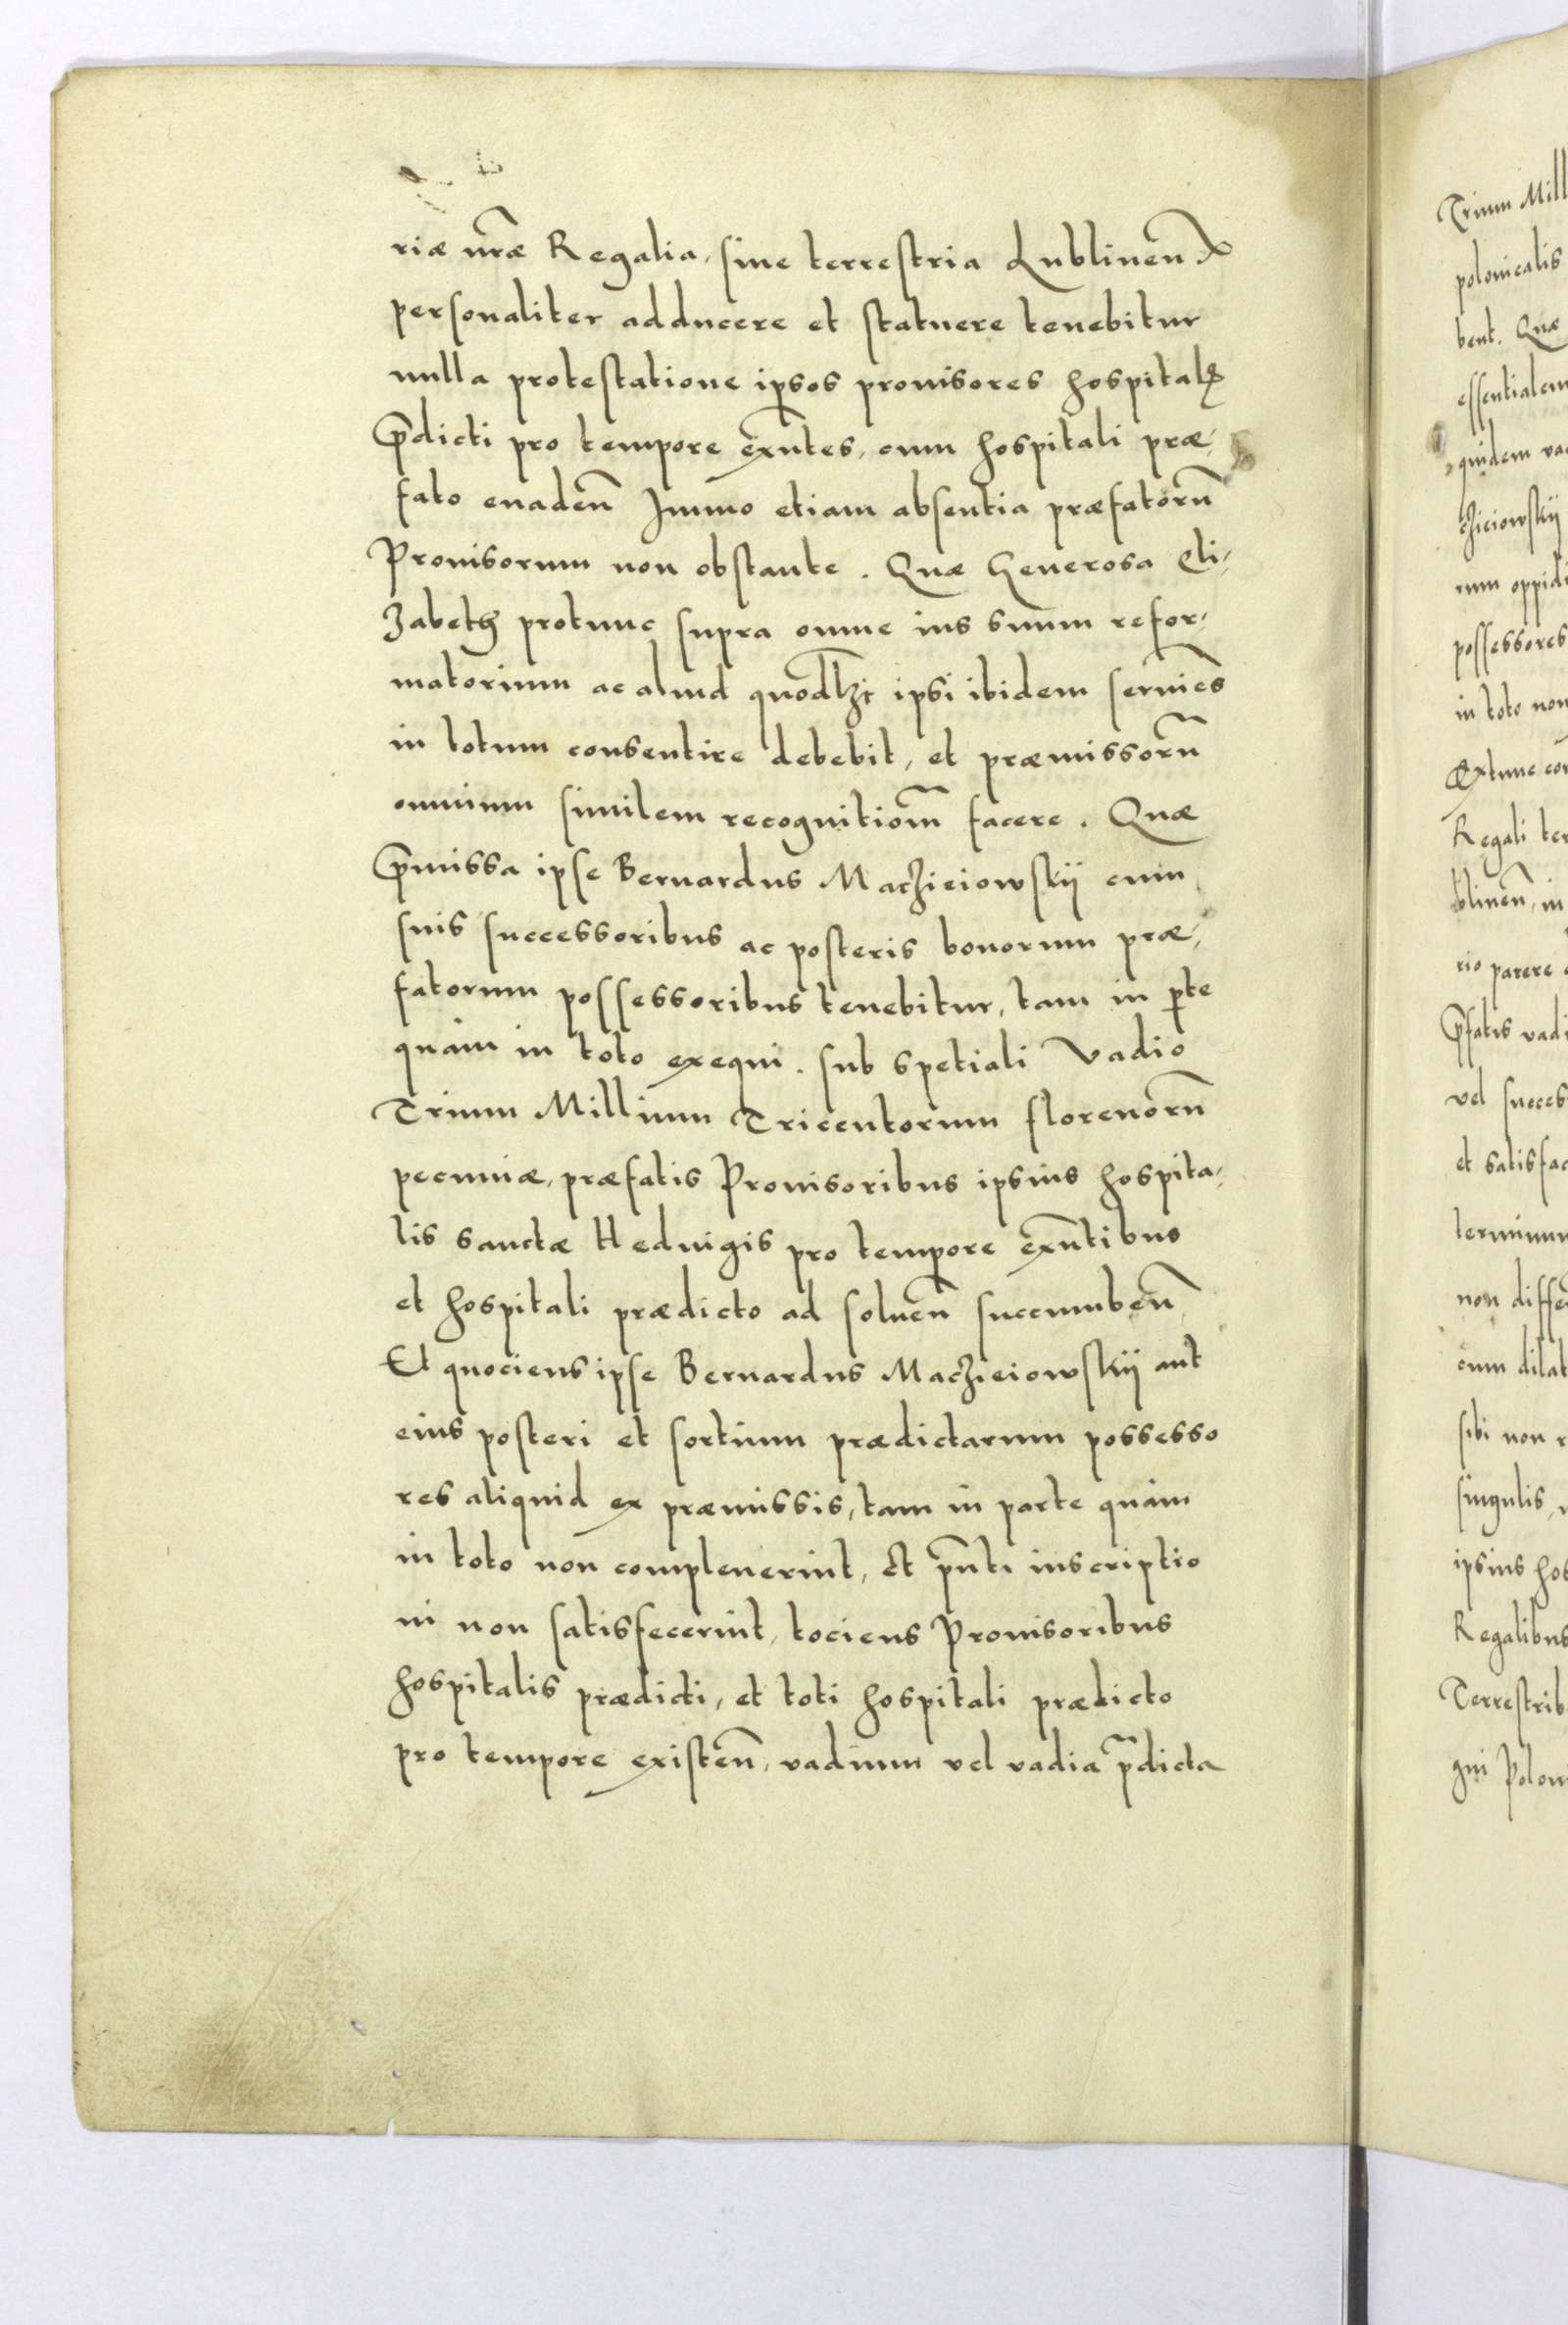 riæ nr̃æ Regalia, siue terrestria Lublineñ
personaliter adducere et statuere tenebitur
nulla protestatione ipsos prouisores hospitaľ
p̃dicti pro tempore exñtes, cum hospitali præ,
fato euadeñ Immo etiam absentia præfatorũ
Prouisorum non obstante. Quæ Generosa Eli,
zabeth protunc supra omne ius suum refor,
matorium ac aliud quodlzt ipsi ibidem seruieñs
in totum consentire debebit, et præmissorũ
omnium similem recognitiom̃ facere. Quæ
p̃missa ipse Bernardus Maczieiowskij cum
suis successoribus ac posteris bonorum præ,
fatorum possessoribus tenebitur, tam in pte
quam in toto exequi. sub spetiali Vadio
Trium Millium Tricentorum florenorũ
pecuniæ, præfatis Prouisoribus ipsius hospita,
lis sanctæ Heduigis pro tempore exñtibus
et hospitali prædicto ad solueñ succumbeñ
Et quociens ipse Bernardus Maczieiowskij aut
eius posteri et sortium prædictarum possesso
res aliquid ex præmissis, tam in parte quam
in toto non compleuerint, Et pñti inscriptio
ni non satisfecerint, tociens Prouisoribus
hospitalis prædicti, et toti hospitali prædicto
pro tempore existeñ, vadium vel vadia p̃dicta
Trium Mill
polonicalis
bent. Quæ
essentialem
quidem va
cziciowskij
rum oppidi
possessores
in toto non
Extunc co
Regali ter
blineñ, in
rio parere
p̃fatis vadi
vel succes
et satisfac
terminum
non diffe
cum dilat
sibi non r
singulis,
ipsius hos
Regalibus
Terrestrib
gni Polon